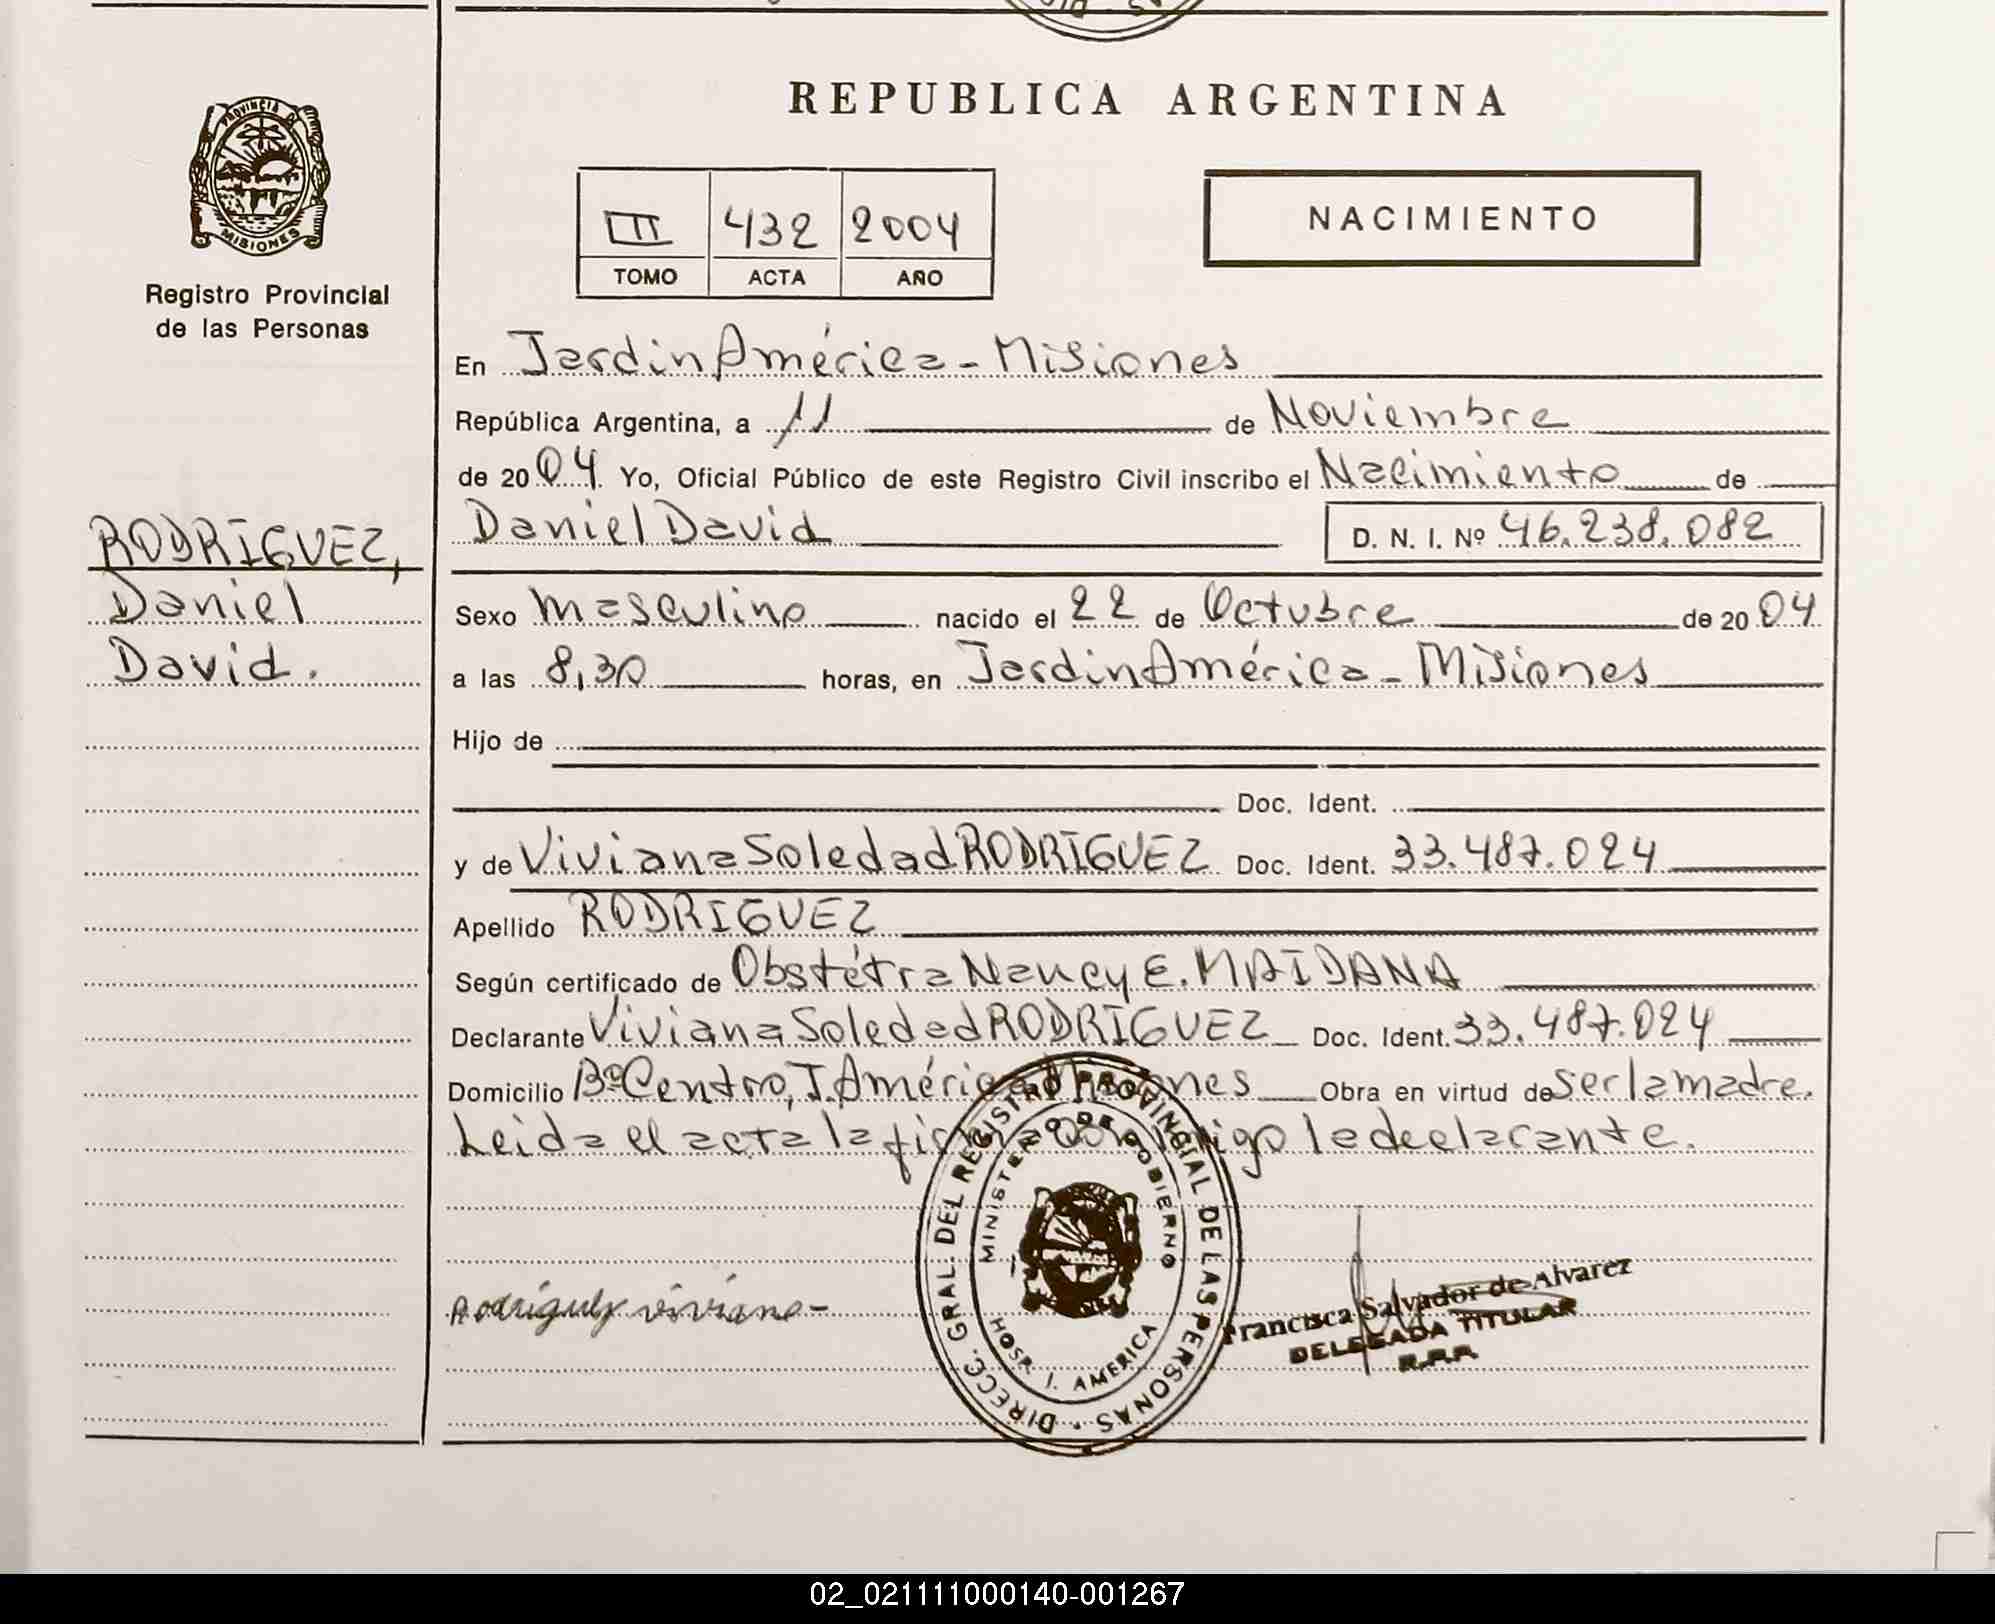 REPUBLICA ARGENTINA
PROVINCIA DE
MISIONES
Registro Provincial
de las Personas
III 432 2004
TOMO ACTA AÑO
NACIMIENTO
En Jardin América - Misiones
República Argentina, a 11 de Noviembre
de 2004 Yo, Oficial Público de este Registro Civil inscribo el Nacimiento de
RODRIGUEZ,
Daniel
David.
Daniel David D. N. I. Nº 46.238.082
Sexo masculino nacido el 22 de Octubre de 2004
a las 8,30 horas, en Jardin América - Misiones
Hijo de
Doc. Ident.
y de Viviana Soledad RODRIGUEZ Doc. Ident. 33.487.024
Apellido RODRIGUEZ
Según certificado de Obstétra Nancy E. MAIDANA
Declarante Viviana Soledad RODRIGUEZ Doc. Ident. 33.487.024
Domicilio Bº Centro, J. América Misiones Obra en virtud de ser la madre.
Leida el acta la firma conmigo la declarante.
DIRECC. GRAL. DEL REGISTRO PROVINCIAL DE LAS PERSONAS
MINISTERIO DE GOBIERNO
HOSP. J. AMERICA
Rodriguez viviana-
Francisca Salvador de Alvarez
DELEGADA TITULAR
R.P.P.
02_021111000140-001267